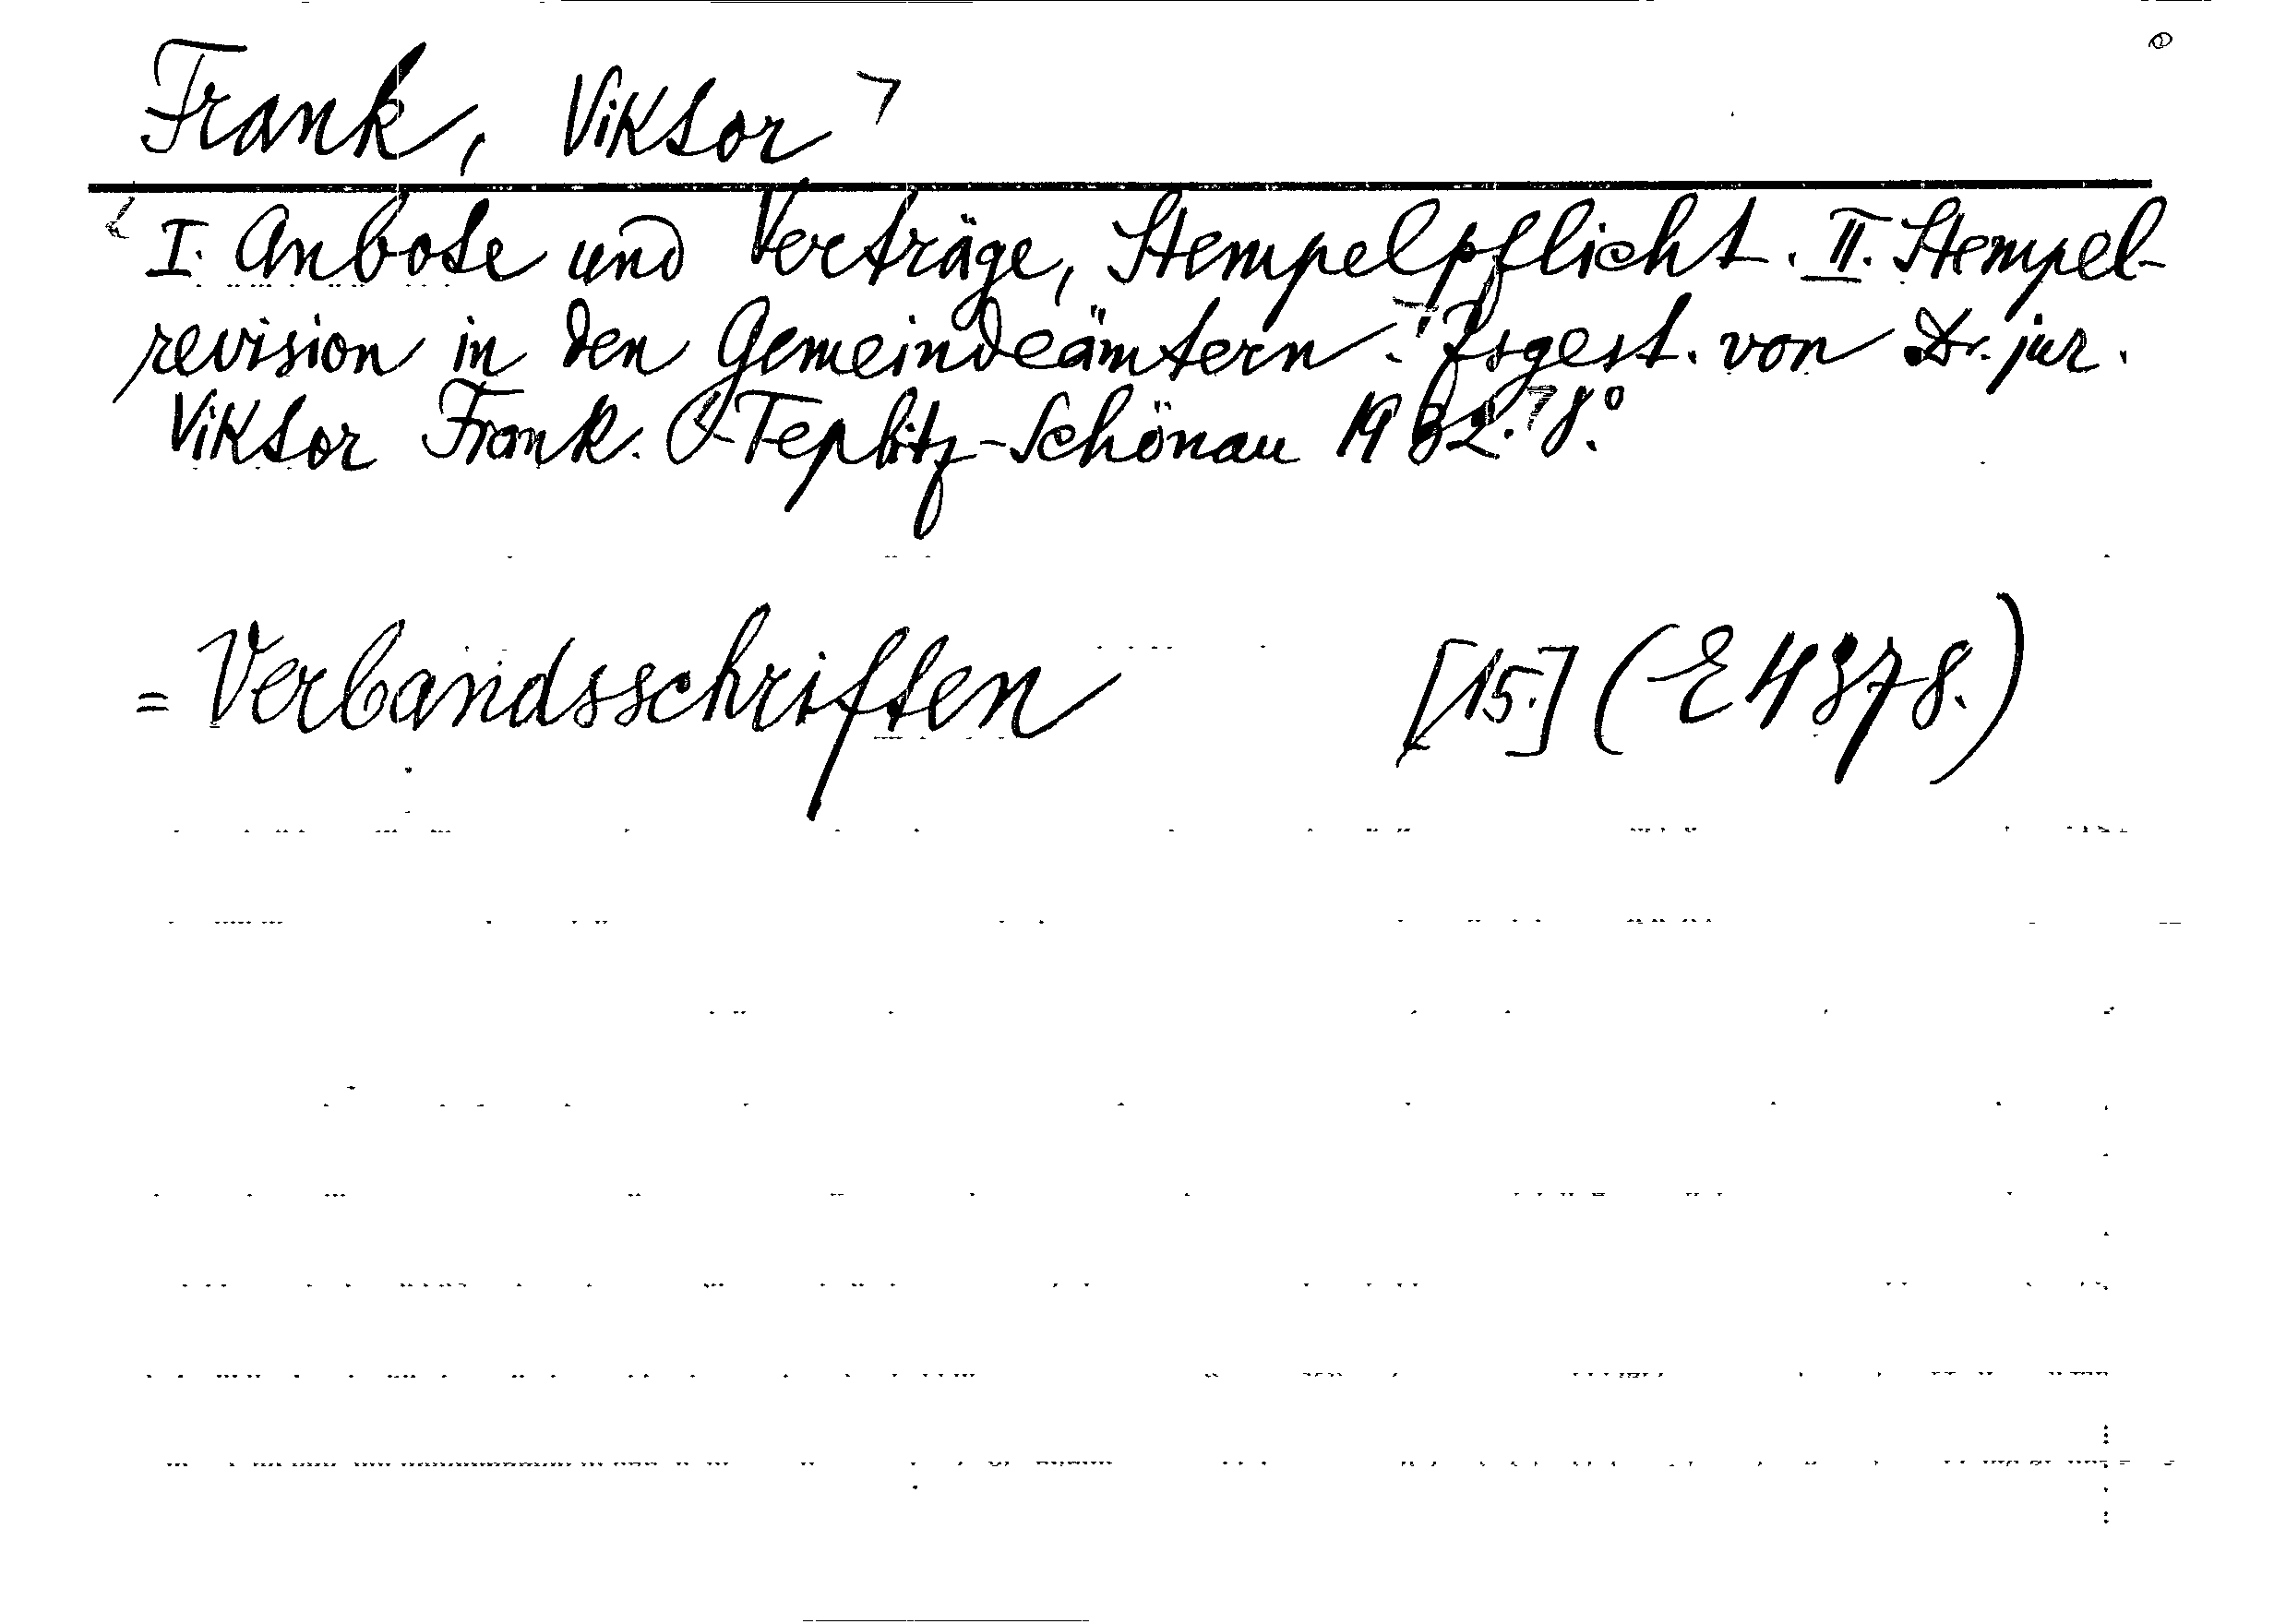 Frank, Viktor
I. Anbote und Verträge, Stempelpflicht. II. Stempel-
revision in den Gemeindeämtern. Zsgest. von Dr. jur.
Viktor Frank. Teplitz-Schönau 1932. 8°.
= Verbandsschriften [15.] (E 4378.)